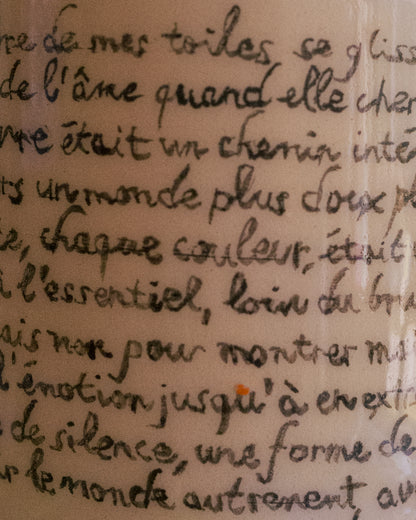 re de mes toiles, se gliss
de l'âme quand elle cher
re était un chemin inté
rs un monde plus doux pl
te, chaque couleur, était
à l'essentiel, loin du bru
ais non pour montrer ma
l'émotion jusqu'à en extr
de silence, une forme de
r le monde autrement, av